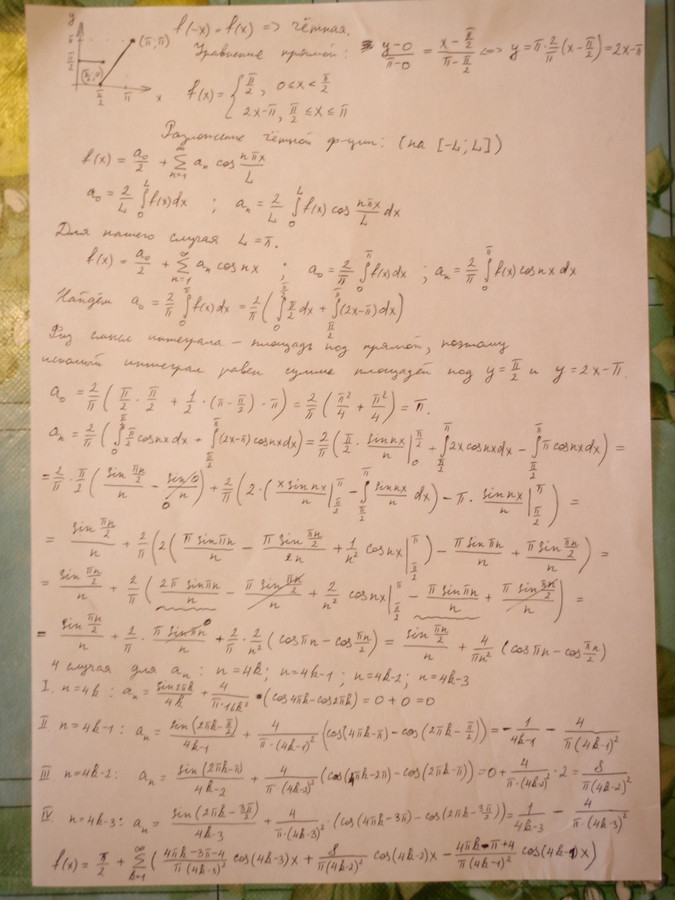 y
f(-x) = f(x) => чётная.
π
(π; π)
Уравнение прямой: (y-0)/(π-0) = (x-π/2)/(π-π/2) <=> y = π·2/π(x-π/2) = 2x-π
π/2
π/2 π x
f(x) = { π/2, 0≤x<π/2
2x-π, π/2≤x≤π
Разложение чётной ф-ции: (на [-L; L])
f(x) = a₀/2 + ∑_{n=1}^{∞} aₙ cos nπx/L
a₀ = 2/L ∫₀^L f(x)dx ; aₙ = 2/L ∫₀^L f(x) cos nπx/L dx
Для нашего случая L=π.
f(x) = a₀/2 + ∑_{n=1}^{∞} aₙ cos nx ; a₀ = 2/π ∫₀^π f(x)dx ; aₙ = 2/π ∫₀^π f(x) cos nx dx
Найдём a₀ = 2/π ∫₀^π f(x)dx = 2/π (∫₀^{π/2} π/2 dx + ∫_{π/2}^π (2x-π)dx)
Физ смысл интеграла – площадь под прямой, поэтому
искомый интеграл равен сумме площадей под y=π/2 и y=2x-π.
a₀ = 2/π (π/2 · π/2 + 1/2 · (π-π/2) · π) = 2/π (π²/4 + π²/4) = π.
aₙ = 2/π (∫₀^{π/2} π/2 cos nx dx + ∫_{π/2}^π (2x-π) cos nx dx) = 2/π (π/2 · sin nx/n |₀^{π/2} + ∫_{π/2}^π 2x cos nx dx - ∫_{π/2}^π π cos nx dx) =
= 2/π · π/2 (sin(πn/2)/n - sin 0/n) + 2/π (2·(x sin nx/n |_{π/2}^π - ∫_{π/2}^π sin nx/n dx) - π · sin nx/n |_{π/2}^π) =
= sin(πn/2)/n + 2/π (2(π sin πn/n - π sin(πn/2)/2n + 1/n² cos nx |_{π/2}^π) - π sin πn/n + π sin(πn/2)/n) =
= sin(πn/2)/n + 2/π (2π sin πn/n - π sin(πn/2)/n + 2/n² cos nx |_{π/2}^π - π sin πn/n + π sin(πn/2)/n) =
= sin(πn/2)/n + 2/π · π sin πn/n + 2/π · 2/n² (cos πn - cos πn/2) = sin(πn/2)/n + 4/πn² (cos πn - cos πn/2)
4 случая для aₙ: n=4k; n=4k-1; n=4k-2; n=4k-3
I. n=4k: aₙ = sin 2πk/4k + 4/(π·16k²) · (cos 4πk - cos 2πk) = 0+0=0
II n=4k-1: aₙ = sin(2πk-π/2)/(4k-1) + 4/(π·(4k-1)²) (cos(4πk-π) - cos(2πk-π/2)) = -1/(4k-1) - 4/(π(4k-1)²)
III n=4k-2: aₙ = sin(2πk-π)/(4k-2) + 4/(π·(4k-2)²) (cos(4πk-2π) - cos(2πk-π)) = 0 + 4/(π·(4k-2)²) · 2 = 8/(π(4k-2)²)
IV. n=4k-3: aₙ = sin(2πk-3π/2)/(4k-3) + 4/(π·(4k-3)²) · (cos(4πk-3π) - cos(2πk-3π/2)) = 1/(4k-3) - 4/(π·(4k-3)²)
f(x) = π/2 + ∑_{k=1}^{∞} ((4πk-3π-4)/(π(4k-3)²) cos(4k-3)x + 8/(π(4k-2)²) cos(4k-2)x - (4πk-π+4)/(π(4k-1)²) cos(4k-1)x)